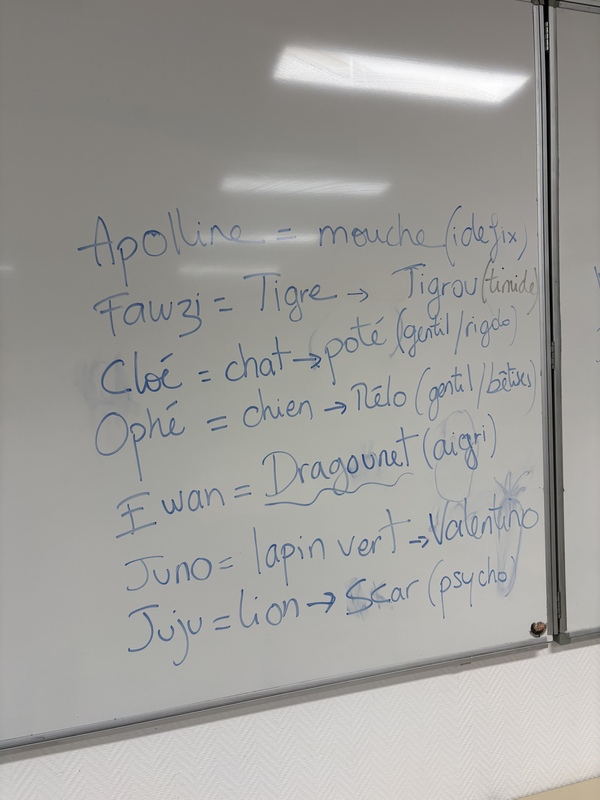 Apolline = mouche (idefix)
Fawzi = Tigre → Tigrou (timide)
Cloé = chat → poté (gentil / rigolo)
Ophé = chien → Rélo (gentil / bêtises)
Ewan = Dragounet (aigri)
Juno = lapin vert → Valentino
Juju = lion → Scar (psycho)